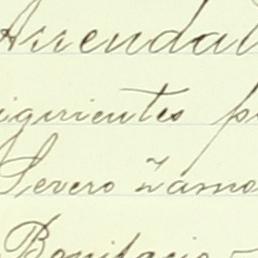 Arrendat
iguientes p
Severo Zamo
Bonifacio